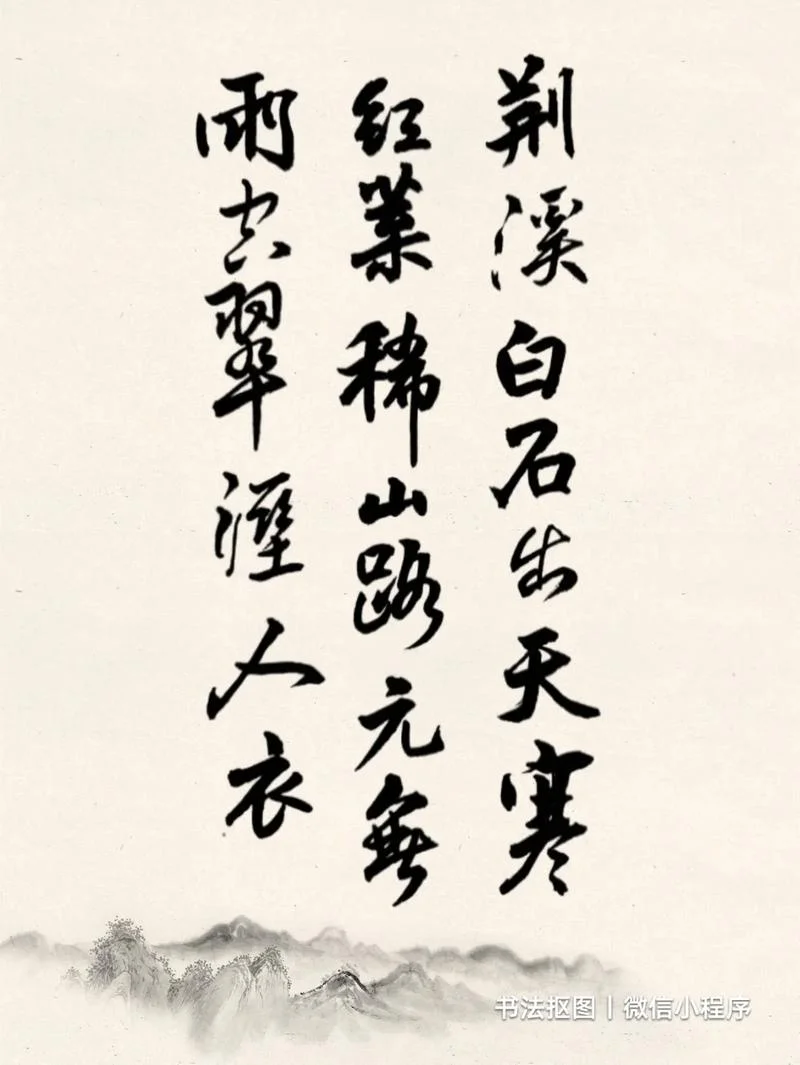 荆溪白石出天寒
红葉稀山路元無
雨空翠溼人衣
书法抠图丨微信小程序